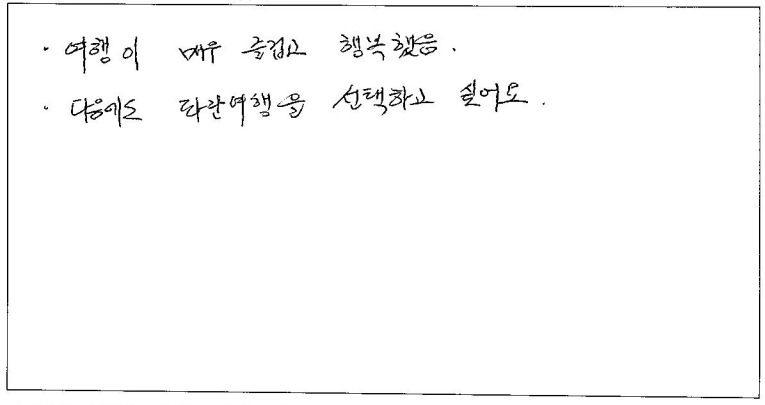 · 여행이 매우 즐겁고 행복했음.
· 다음에도 파란여행을 선택하고 싶어요.